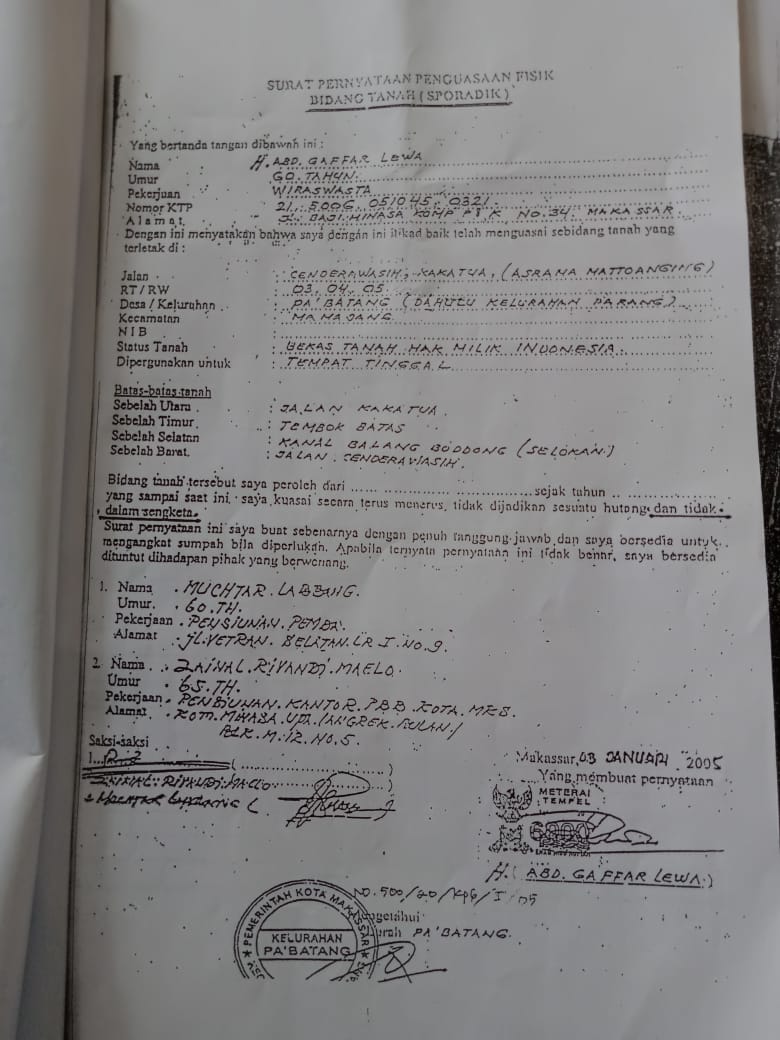 SURAT PERNYATAAN PENGUASAAN FISIK
BIDANG TANAH ( SPORADIK )
Yang bertanda tangan dibawah ini :
Nama : H. ABD. GAFFAR LEWA
Umur 60 TAHUN.
Pekerjaan WIRASWASTA
Nomor KTP 21. 5006. 051045. 0321.
Alamat : JL. BAJI MINASA KOMP P I K NO.34. MAKASSAR.
Dengan ini menyatakan bahwa saya dengan ini itikad baik telah menguasai sebidang tanah yang
terletak di :
Jalan : CENDERAWASIH, KAKATUA, (ASRAMA MATTOANGING)
RT / RW : 03. 04. 05
Desa / Kelurahan : PA'BATANG (DAHULU KELURAHAN PARANG)
Kecamatan : MAMAJANG
N I B :
Status Tanah : BEKAS TANAH HAK MILIK INDONESIA.
Dipergunakan untuk : TEMPAT TINGGAL
Batas-batas tanah
Sebelah Utara : JALAN KAKATUA.
Sebelah Timur. : TEMBOK BATAS
Sebelah Selatan : KANAL BALANG BODDONG (SELOKAN)
Sebelah Barat. : JALAN CENDERAWASIH.
Bidang tanah tersebut saya peroleh dari ........................ sejak tahun ............
yang sampai saat ini, saya kuasai secara terus menerus, tidak dijadikan sesuatu hutang dan tidak
dalam sengketa.
Surat pernyataan ini saya buat sebenarnya dengan penuh tanggung jawab dan saya bersedia untuk
mengangkat sumpah bila diperlukan. Apabila ternyata pernyataan ini tidak benar, saya bersedia
dituntut dihadapan pihak yang berwenang.
1. Nama . MUCHTAR. LABBANG.
Umur. . 60. TH.
Pekerjaan . PENSIUNAN. PEMDA.
Alamat . JL. VETRAN. SELATAN. LR I. NO. 9.
2. Nama . ZAINAL. RIVANDI. MAELO.
Umur . 65. TH.
Pekerjaan . PENSIUNAN. KANTOR. PBB. KOTA. MKS.
Alamat . KOM.
BLK. M. 12. NO. 5.
Saksi-saksi
Makassar, 03 JANUARI 2005
Yang membuat pernyataan
METERAI
TEMPEL
6000
H. ( ABD. GAFFAR LEWA. )
NO. 500/20/
Mengetahui
Lurah PA'BATANG.
PEMERINTAH KOTA MAKASSAR
KELURAHAN
PA'BATANG